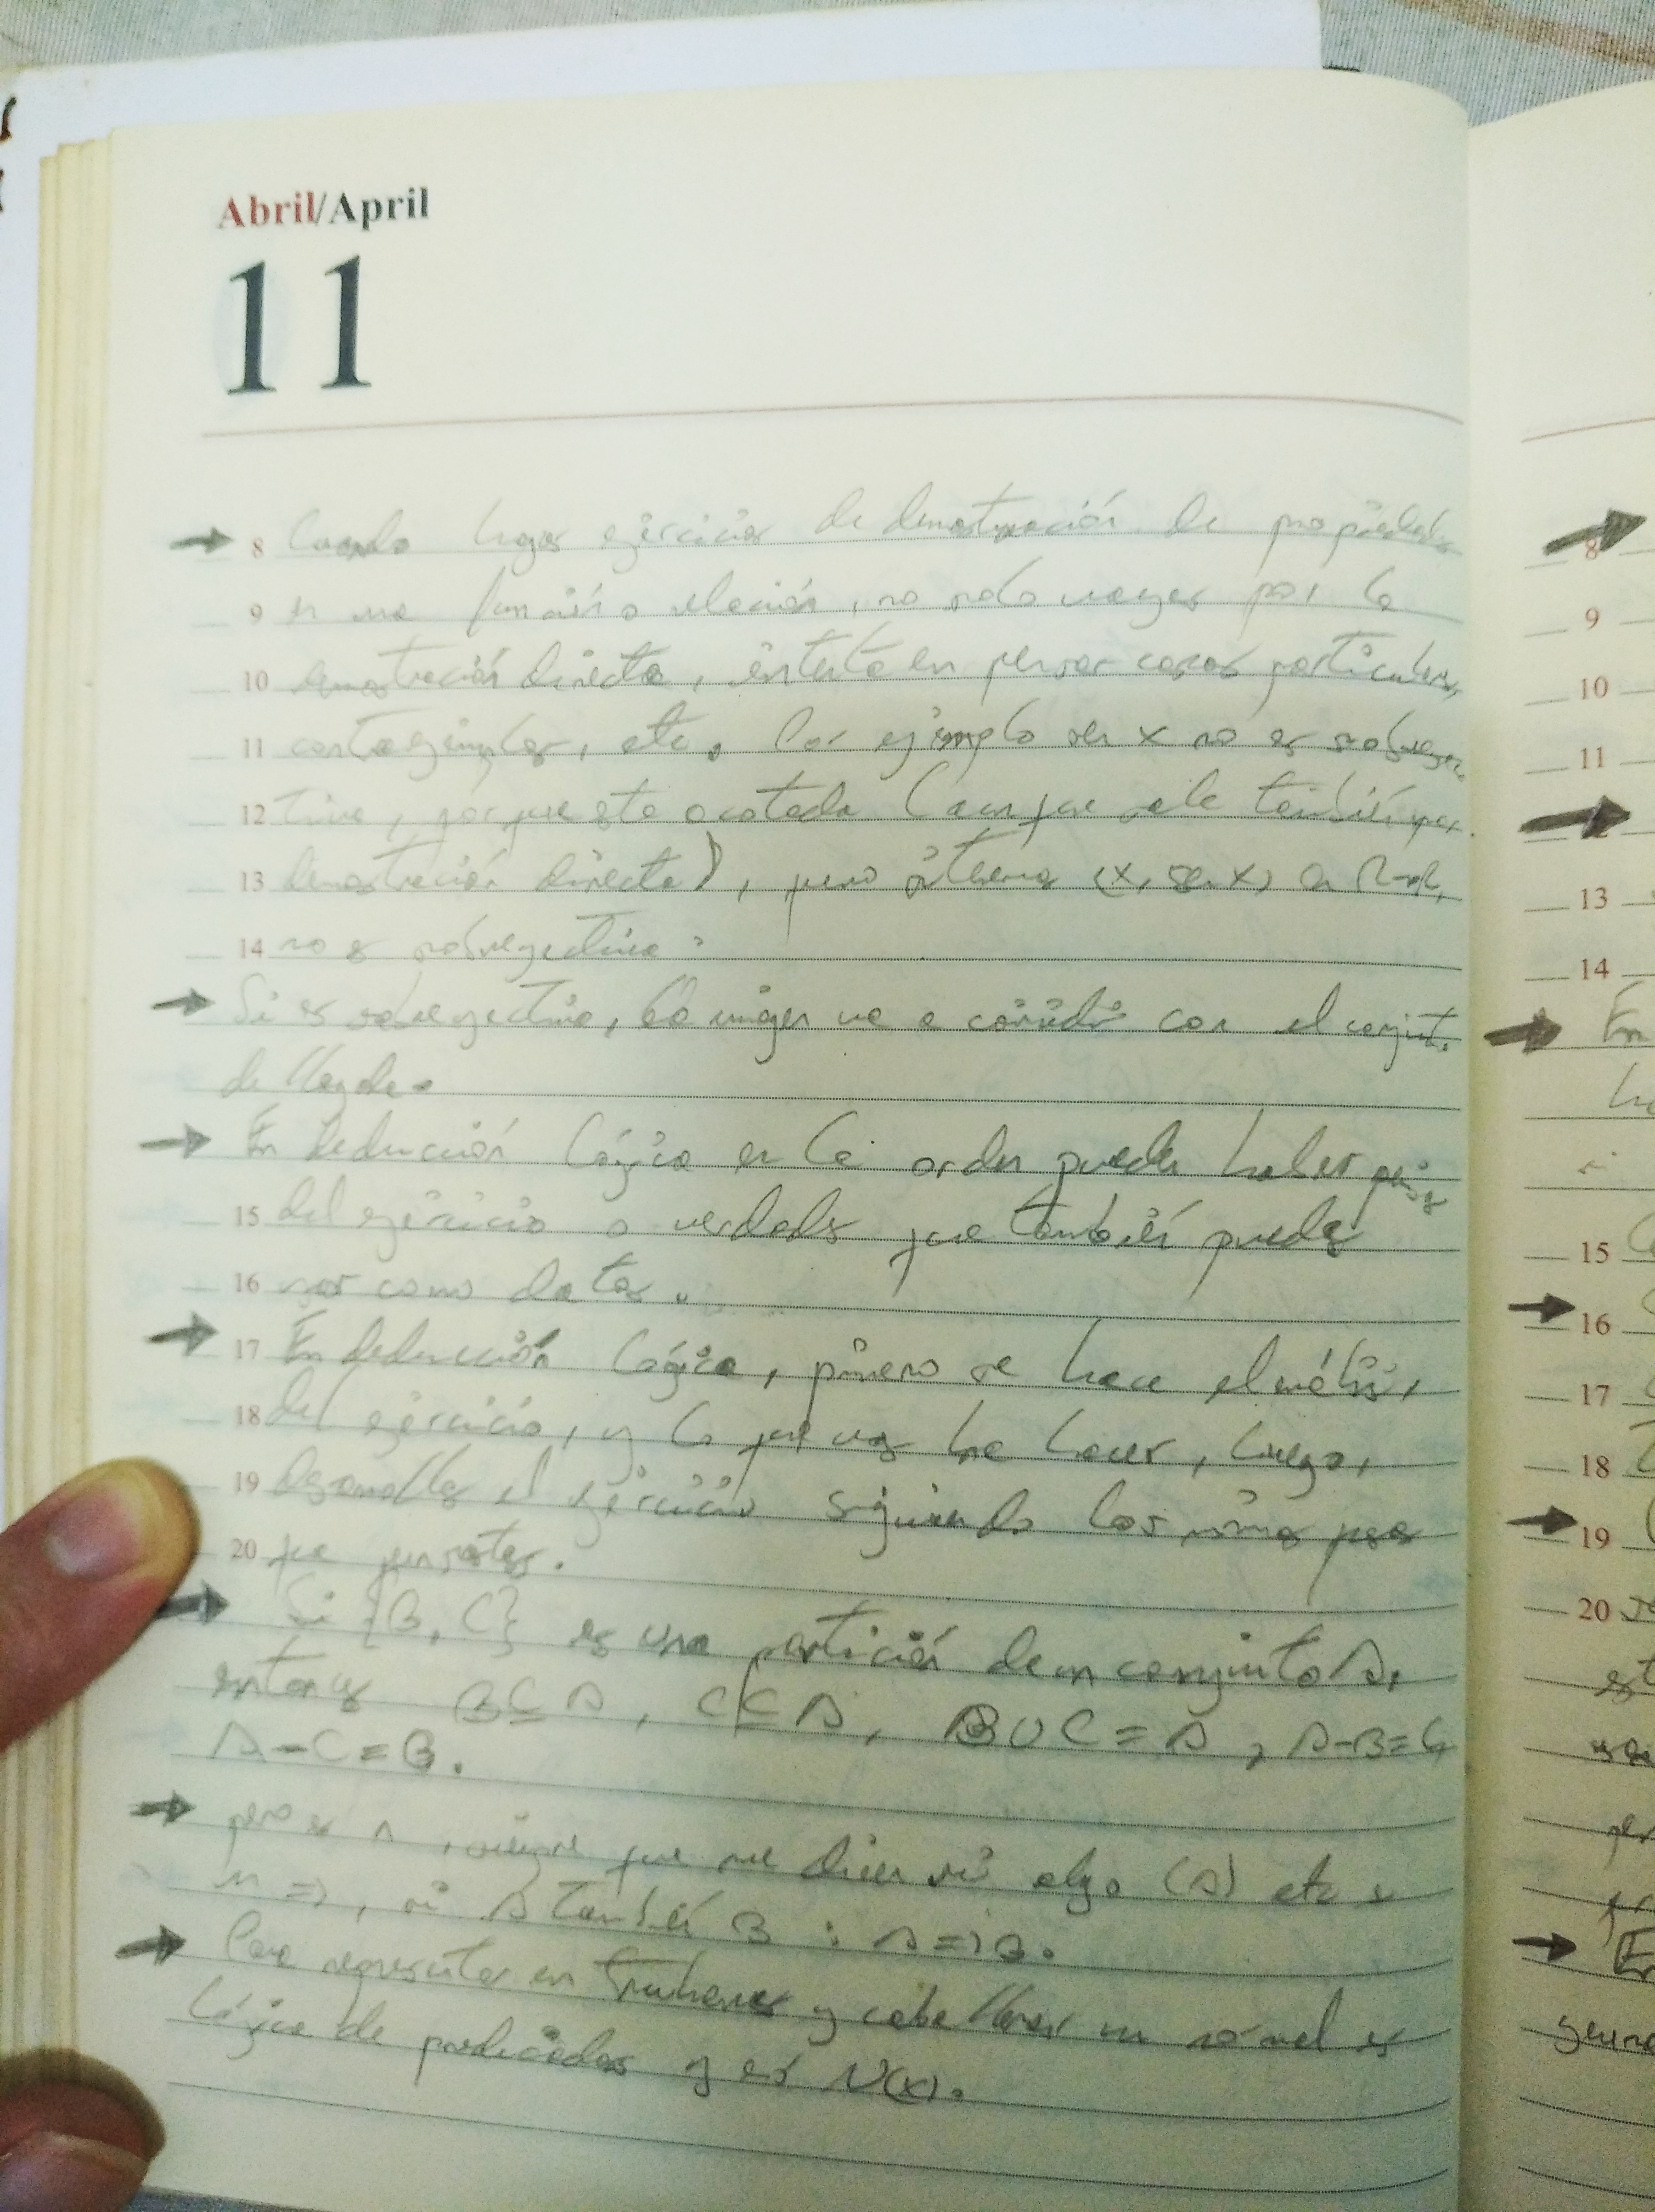 Abril/April
11
→ 8 Cuando hagas ejercicios de demostración de propiedades
9 en una función o relación, no solo vayas por la
10 demostración directa, intenta en pensar casos particulares,
11 contraejemplos, etc. Por ejemplo sen x no es sobreyec
12 tiva, porque está acotada (aunque sale también por
13 demostración directa), pero si tienes (x, sen x) en R→R,
14 no es sobreyectiva.
→ Si es sobreyectiva, la imagen va a coincidir con el conjunto
de llegada.
→ En deducción lógica en la orden puede haber
15 del ejercicio o verdades que también puedes
16 usar como datos.
→ 17 En deducción lógica, primero se hace el análisis,
18 del ejercicio, y lo que vas ha hacer, luego,
19 desarrollas el ejercicio siguiendo los mismos pasos
20 que pensaste.
→ Si {B, C} es una partición de un conjunto A,
entonces B⊆A, C⊆A, B∪C=A, A-B=C,
A-C=B.
→ pero es ∧, siempre que me dicen si algo (A) etc
un =>, si A también B : A=>B.
→ Para representar en truhanes y caballeros un normal es
lógica de predicados y es N(x).
8
9
10
11
13
14
→ En
15
→ 16
17
18
→ 19
20
→ En